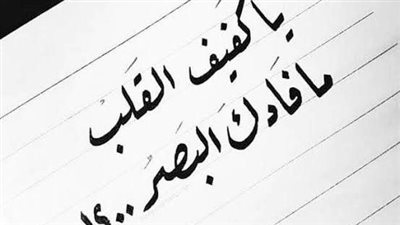 يا كفيف القلب
ما فادك البصر ..؟!